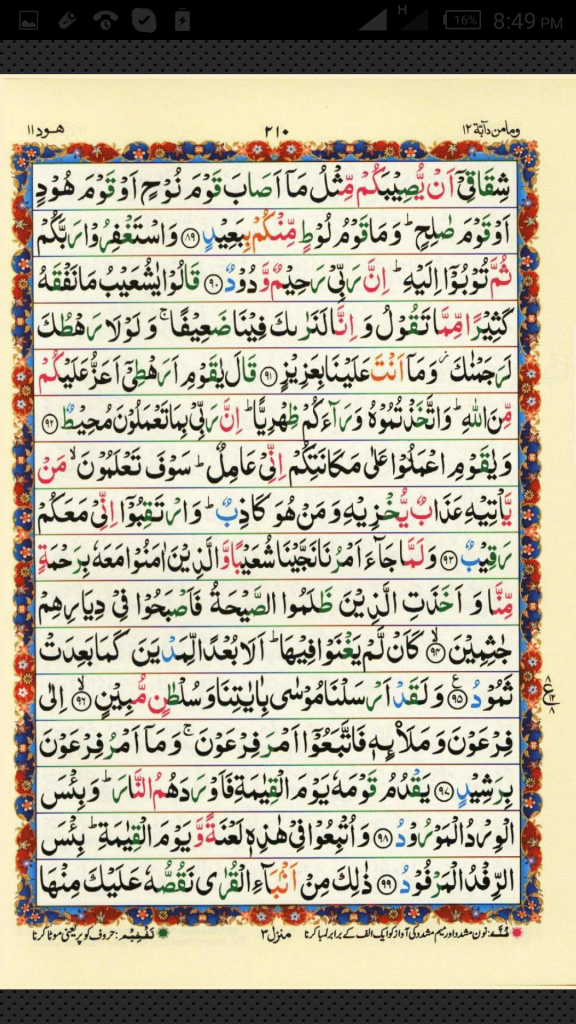 H 16% 8:49 PM
ومامن دآبة ١٢ ٢١٠ هود ١١
شِقَاقِيْۤ اَنْ يُّصِيْبَكُمْ مِّثْلُ مَاۤ اَصَابَ قَوْمَ نُوْحٍ اَوْ قَوْمَ هُوْدٍ
اَوْ قَوْمَ صٰلِحٍ ؕ وَمَا قَوْمُ لُوْطٍ مِّنْكُمْ بِبَعِيْدٍ ﴿۸۹﴾ وَاسْتَغْفِرُوْا رَبَّكُمْ
ثُمَّ تُوْبُوْۤا اِلَيْهِ ؕ اِنَّ رَبِّيْ رَحِيْمٌ وَّدُوْدٌ ﴿۹۰﴾ قَالُوْا يٰشُعَيْبُ مَا نَفْقَهُ
كَثِيْرًا مِّمَّا تَقُوْلُ وَ اِنَّا لَنَرٰىكَ فِيْنَا ضَعِيْفًا ۚ وَ لَوْلَا رَهْطُكَ
لَرَجَمْنٰكَ ؗ وَمَاۤ اَنْتَ عَلَيْنَا بِعَزِيْزٍ ﴿۹۱﴾ قَالَ يٰقَوْمِ اَرَهْطِيْۤ اَعَزُّ عَلَيْكُمْ
مِّنَ اللّٰهِ ؕ وَاتَّخَذْتُمُوْهُ وَرَآءَكُمْ ظِهْرِيًّا ؕ اِنَّ رَبِّيْ بِمَا تَعْمَلُوْنَ مُحِيْطٌ ﴿۹۲﴾
وَ يٰقَوْمِ اعْمَلُوْا عَلٰى مَكَانَتِكُمْ اِنِّيْ عَامِلٌ ؕ سَوْفَ تَعْلَمُوْنَ ۙ مَنْ
يَّاْتِيْهِ عَذَابٌ يُّخْزِيْهِ وَ مَنْ هُوَ كَاذِبٌ ؕ وَ ارْتَقِبُوْۤا اِنِّيْ مَعَكُمْ
رَقِيْبٌ ﴿۹۳﴾ وَ لَمَّا جَآءَ اَمْرُنَا نَجَّيْنَا شُعَيْبًا وَّ الَّذِيْنَ اٰمَنُوْا مَعَهٗ بِرَحْمَةٍ
مِّنَّا وَ اَخَذَتِ الَّذِيْنَ ظَلَمُوا الصَّيْحَةُ فَاَصْبَحُوْا فِيْ دِيَارِهِمْ
جٰثِمِيْنَ ﴿۹۴﴾ ۙ كَاَنْ لَّمْ يَغْنَوْا فِيْهَا ؕ اَلَا بُعْدًا لِّمَدْيَنَ كَمَا بَعِدَتْ
ثَمُوْدُ ﴿۹۵﴾ ع وَ لَقَدْ اَرْسَلْنَا مُوْسٰى بِاٰيٰتِنَا وَ سُلْطٰنٍ مُّبِيْنٍ ﴿۹۶﴾ ۙ اِلٰى
ع ٨ ١٢ ٨
فِرْعَوْنَ وَ مَلَا۠ئِهٖ فَاتَّبَعُوْۤا اَمْرَ فِرْعَوْنَ ۚ وَ مَاۤ اَمْرُ فِرْعَوْنَ
بِرَشِيْدٍ ﴿۹۷﴾ يَقْدُمُ قَوْمَهٗ يَوْمَ الْقِيٰمَةِ فَاَوْرَدَهُمُ النَّارَ ؕ وَ بِئْسَ
الْوِرْدُ الْمَوْرُوْدُ ﴿۹۸﴾ وَ اُتْبِعُوْا فِيْ هٰذِهٖ لَعْنَةً وَّ يَوْمَ الْقِيٰمَةِ ؕ بِئْسَ
الرِّفْدُ الْمَرْفُوْدُ ﴿۹۹﴾ ذٰلِكَ مِنْ اَنْۢبَآءِ الْقُرٰى نَقُصُّهٗ عَلَيْكَ مِنْهَا
غُنَّہ: نون مشدد اور میم مشدد کی آواز کو ایک الف کے برابر لمبا کرنا منزل ٣ تَفْخِیْم: حروف کو پُر یعنی موٹا کرنا